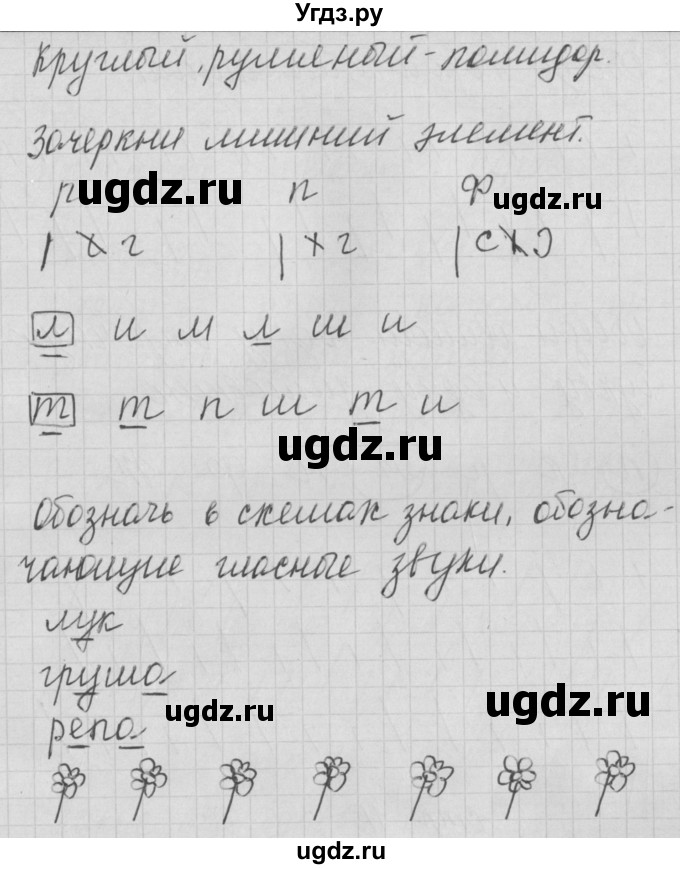 Угдз.ру
круглый, румяный - помидор.
Зачеркни лишний элемент.
р ugdz.ru п Ф ugdz.ru
л и м л ш и
т т п ш т и
ugdz.ru
Обозначь в схемах знаки, обозна-
чающие гласные звуки.
лук
груша
репа
ugdz.ru ugdz.ru
ugdz.ru